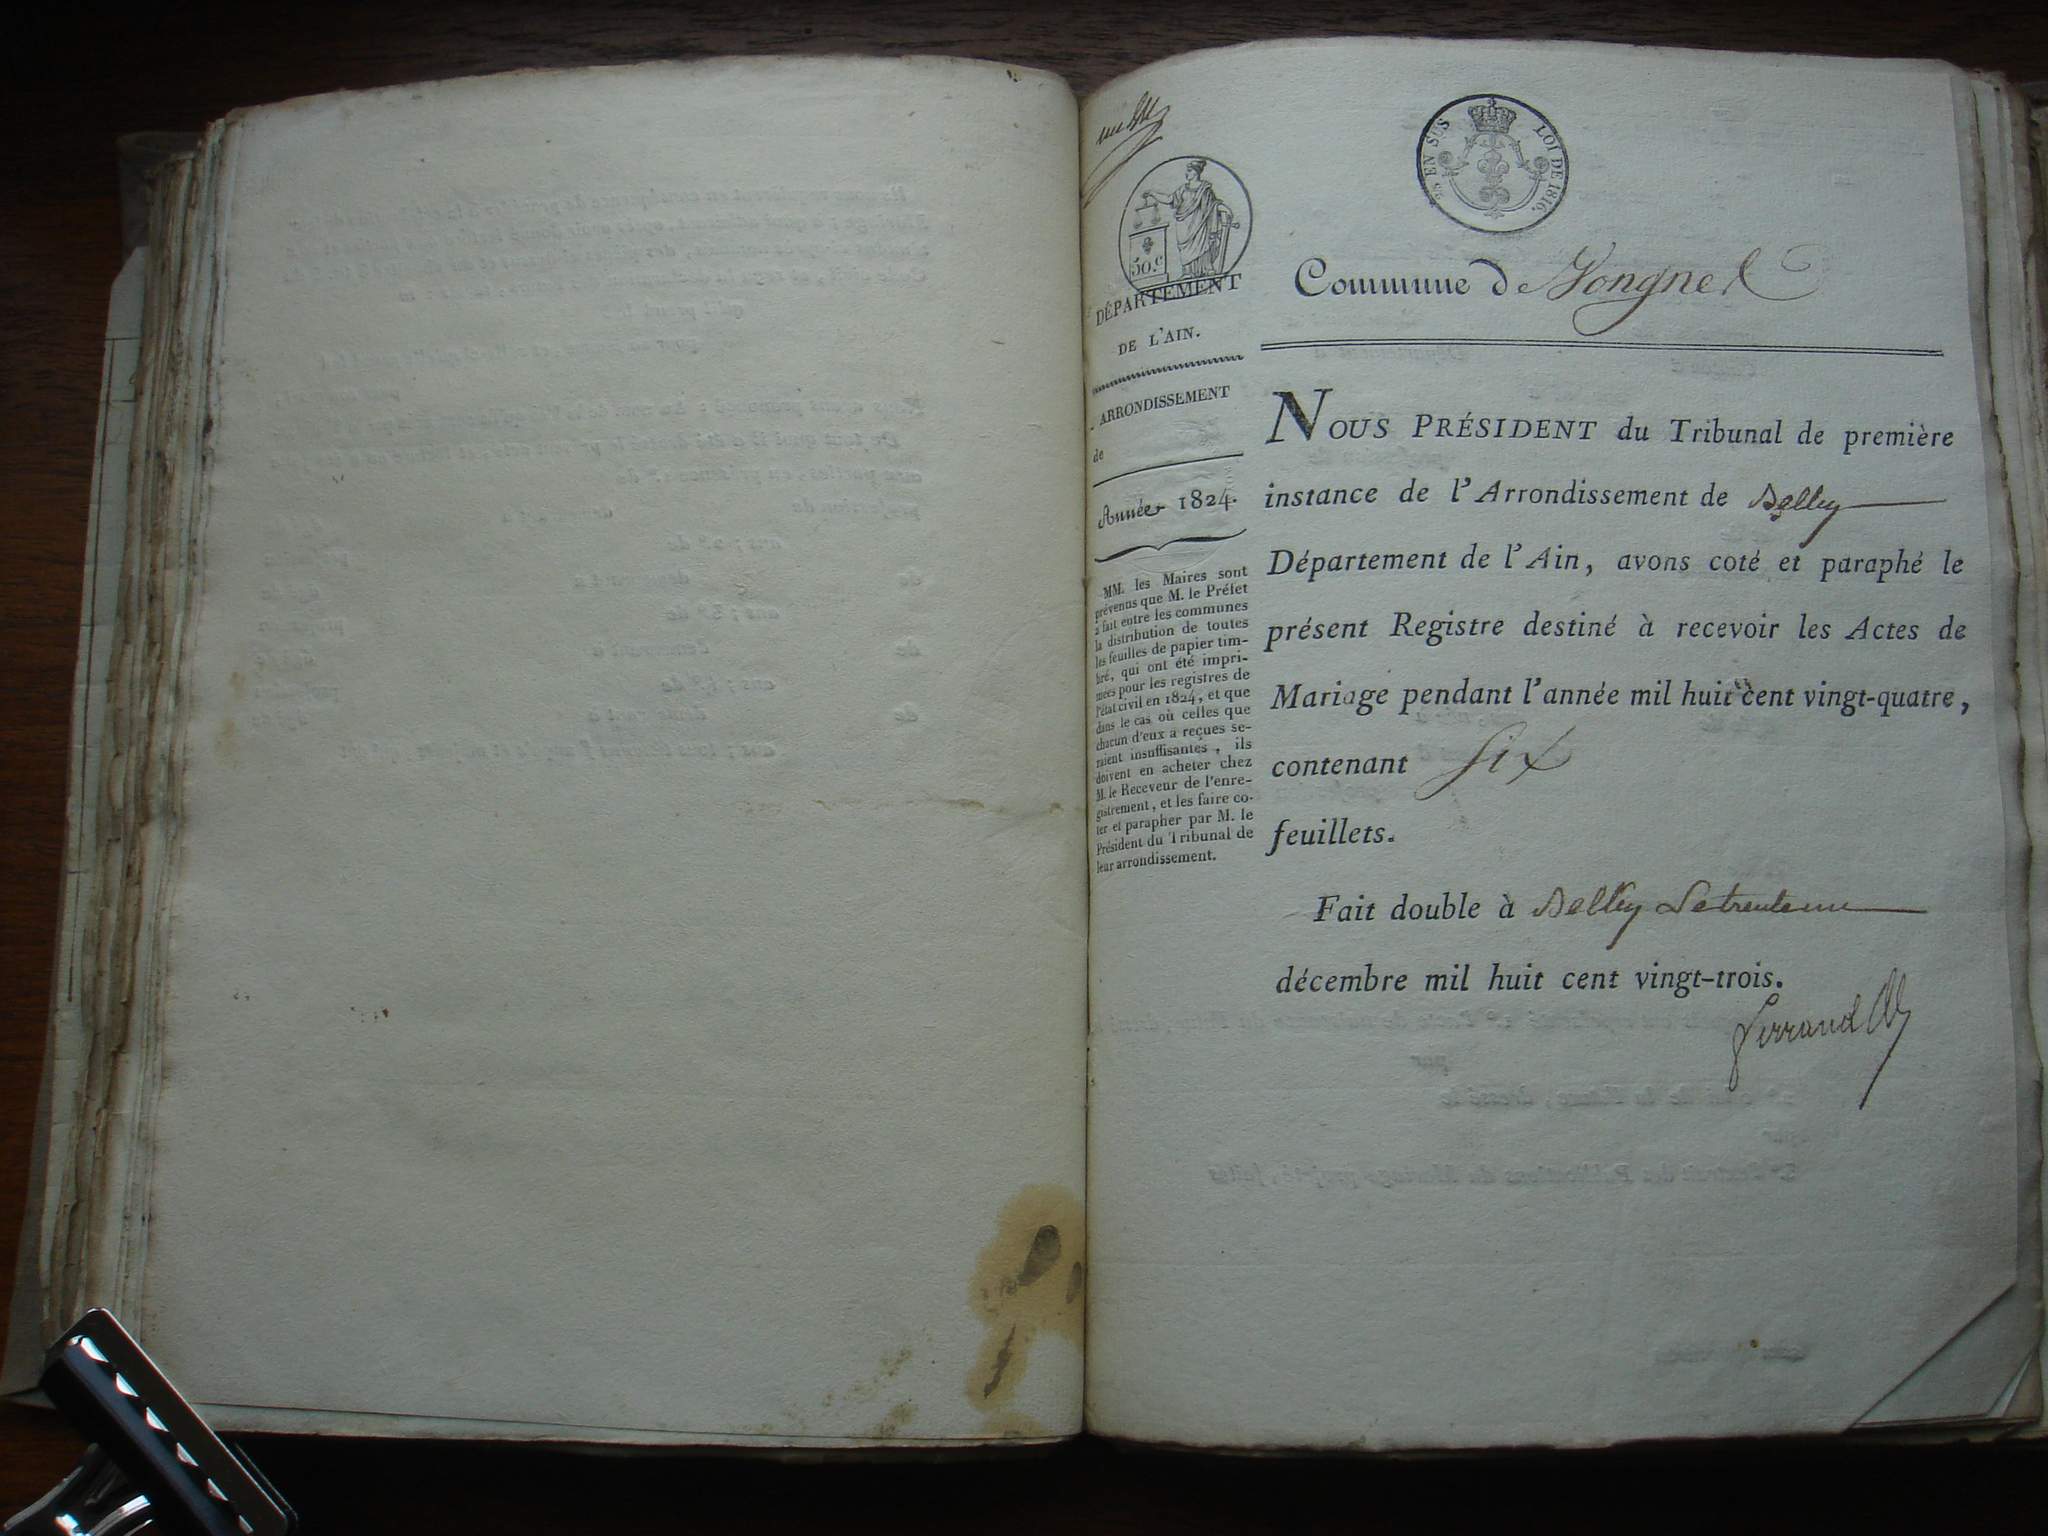 EN SUS LOI DE 1816.
50.c
DÉPARTEMENT
DE L'AIN.
ARRONDISSEMENT
de
Année 1824.
MM. les Maires sont
prévenus que M. le Préfet
a fait entre les communes
la distribution de toutes
les feuilles de papier tim-
bré, qui ont été impri-
mées pour les registres de
l'état civil en 1824, et que
dans le cas où celles que
chacun d'eux a reçues se-
raient insuffisantes, ils
doivent en acheter chez
M. le Receveur de l'enre-
gistrement, et les faire co-
ter et parapher par M. le
Président du Tribunal de
leur arrondissement.
Commune de Vongnes
NOUS PRÉSIDENT du Tribunal de première
instance de l'Arrondissement de Belley
Département de l'Ain, avons coté et paraphé le
présent Registre destiné à recevoir les Actes de
Mariage pendant l'année mil huit cent vingt-quatre,
contenant Six
feuillets.
Fait double à Belley Le trente un
décembre mil huit cent vingt-trois.
Ferrand